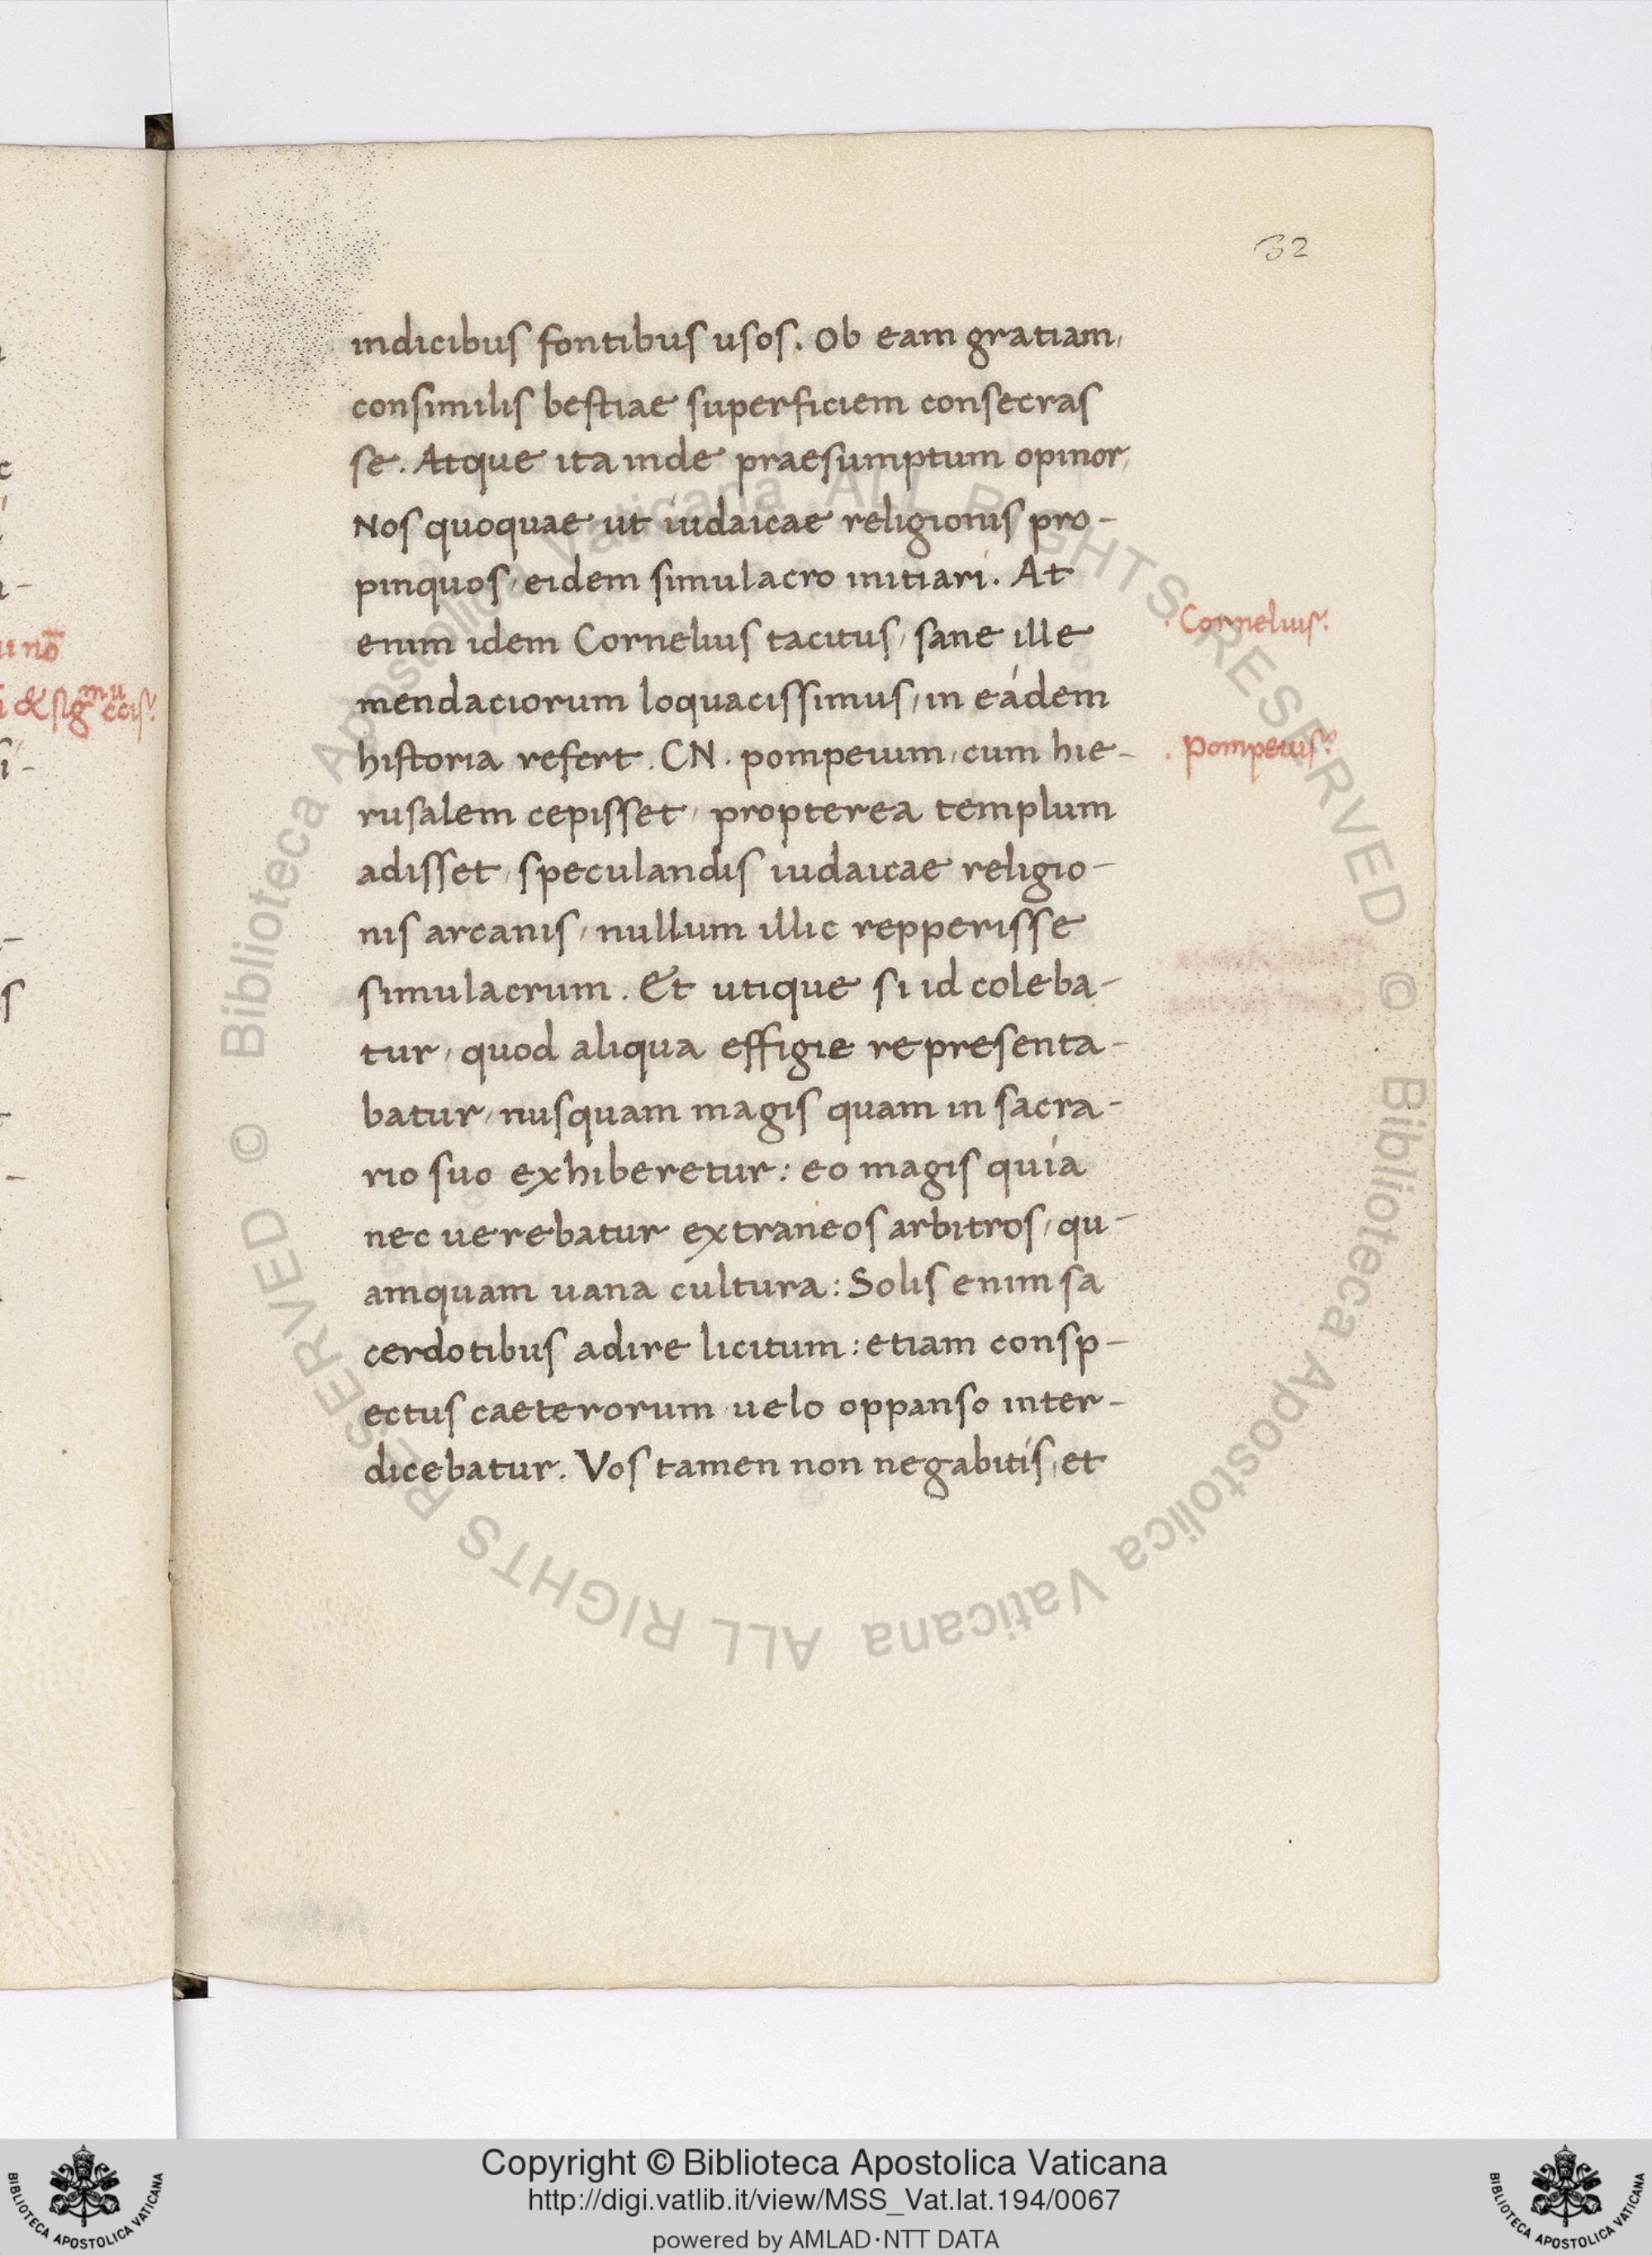 32
indicibus fontibus usos. Ob eam gratiam,
consimilis bestiae superficiem consecras
se. Atque ita inde praesumptum opinor,
Nos quoquae ut iudaicae religionis pro-
pinquos, eidem simulacro initiari. At
enim idem Cornelius tacitus, sane ille
· Cornelius.
mendaciorum loquacissimus, in eádem
historia refert. CN. pompeium, cum hie-
· pompeius.
rusalem cepisset, propterea templum
adisset, speculandis iudaicae religio-
nis arcanis, nullum illic repperisse
simulacrum. Et utique si id coleba-
tur, quod aliqua effigie representa-
batur, nusquam magis quam in sacra-
rio suo exhiberetur: eo magis quia
nec uerebatur extraneos arbitros, qu-
amquam uana cultura: Solis enim sa
cerdotibus adire licitum: etiam consp-
ectus caeterorum uelo oppanso inter-
dicebatur. Vos tamen non negabitis, et
© Biblioteca Apostolica Vaticana ALL RIGHTS RESERVED
© Biblioteca Apostolica Vaticana ALL RIGHTS RESERVED
Copyright © Biblioteca Apostolica Vaticana
http://digi.vatlib.it/view/MSS_Vat.lat.194/0067
powered by AMLAD·NTT DATA
BIBLIOTECA APOSTOLICA VATICANA
BIBLIOTECA APOSTOLICA VATICANA